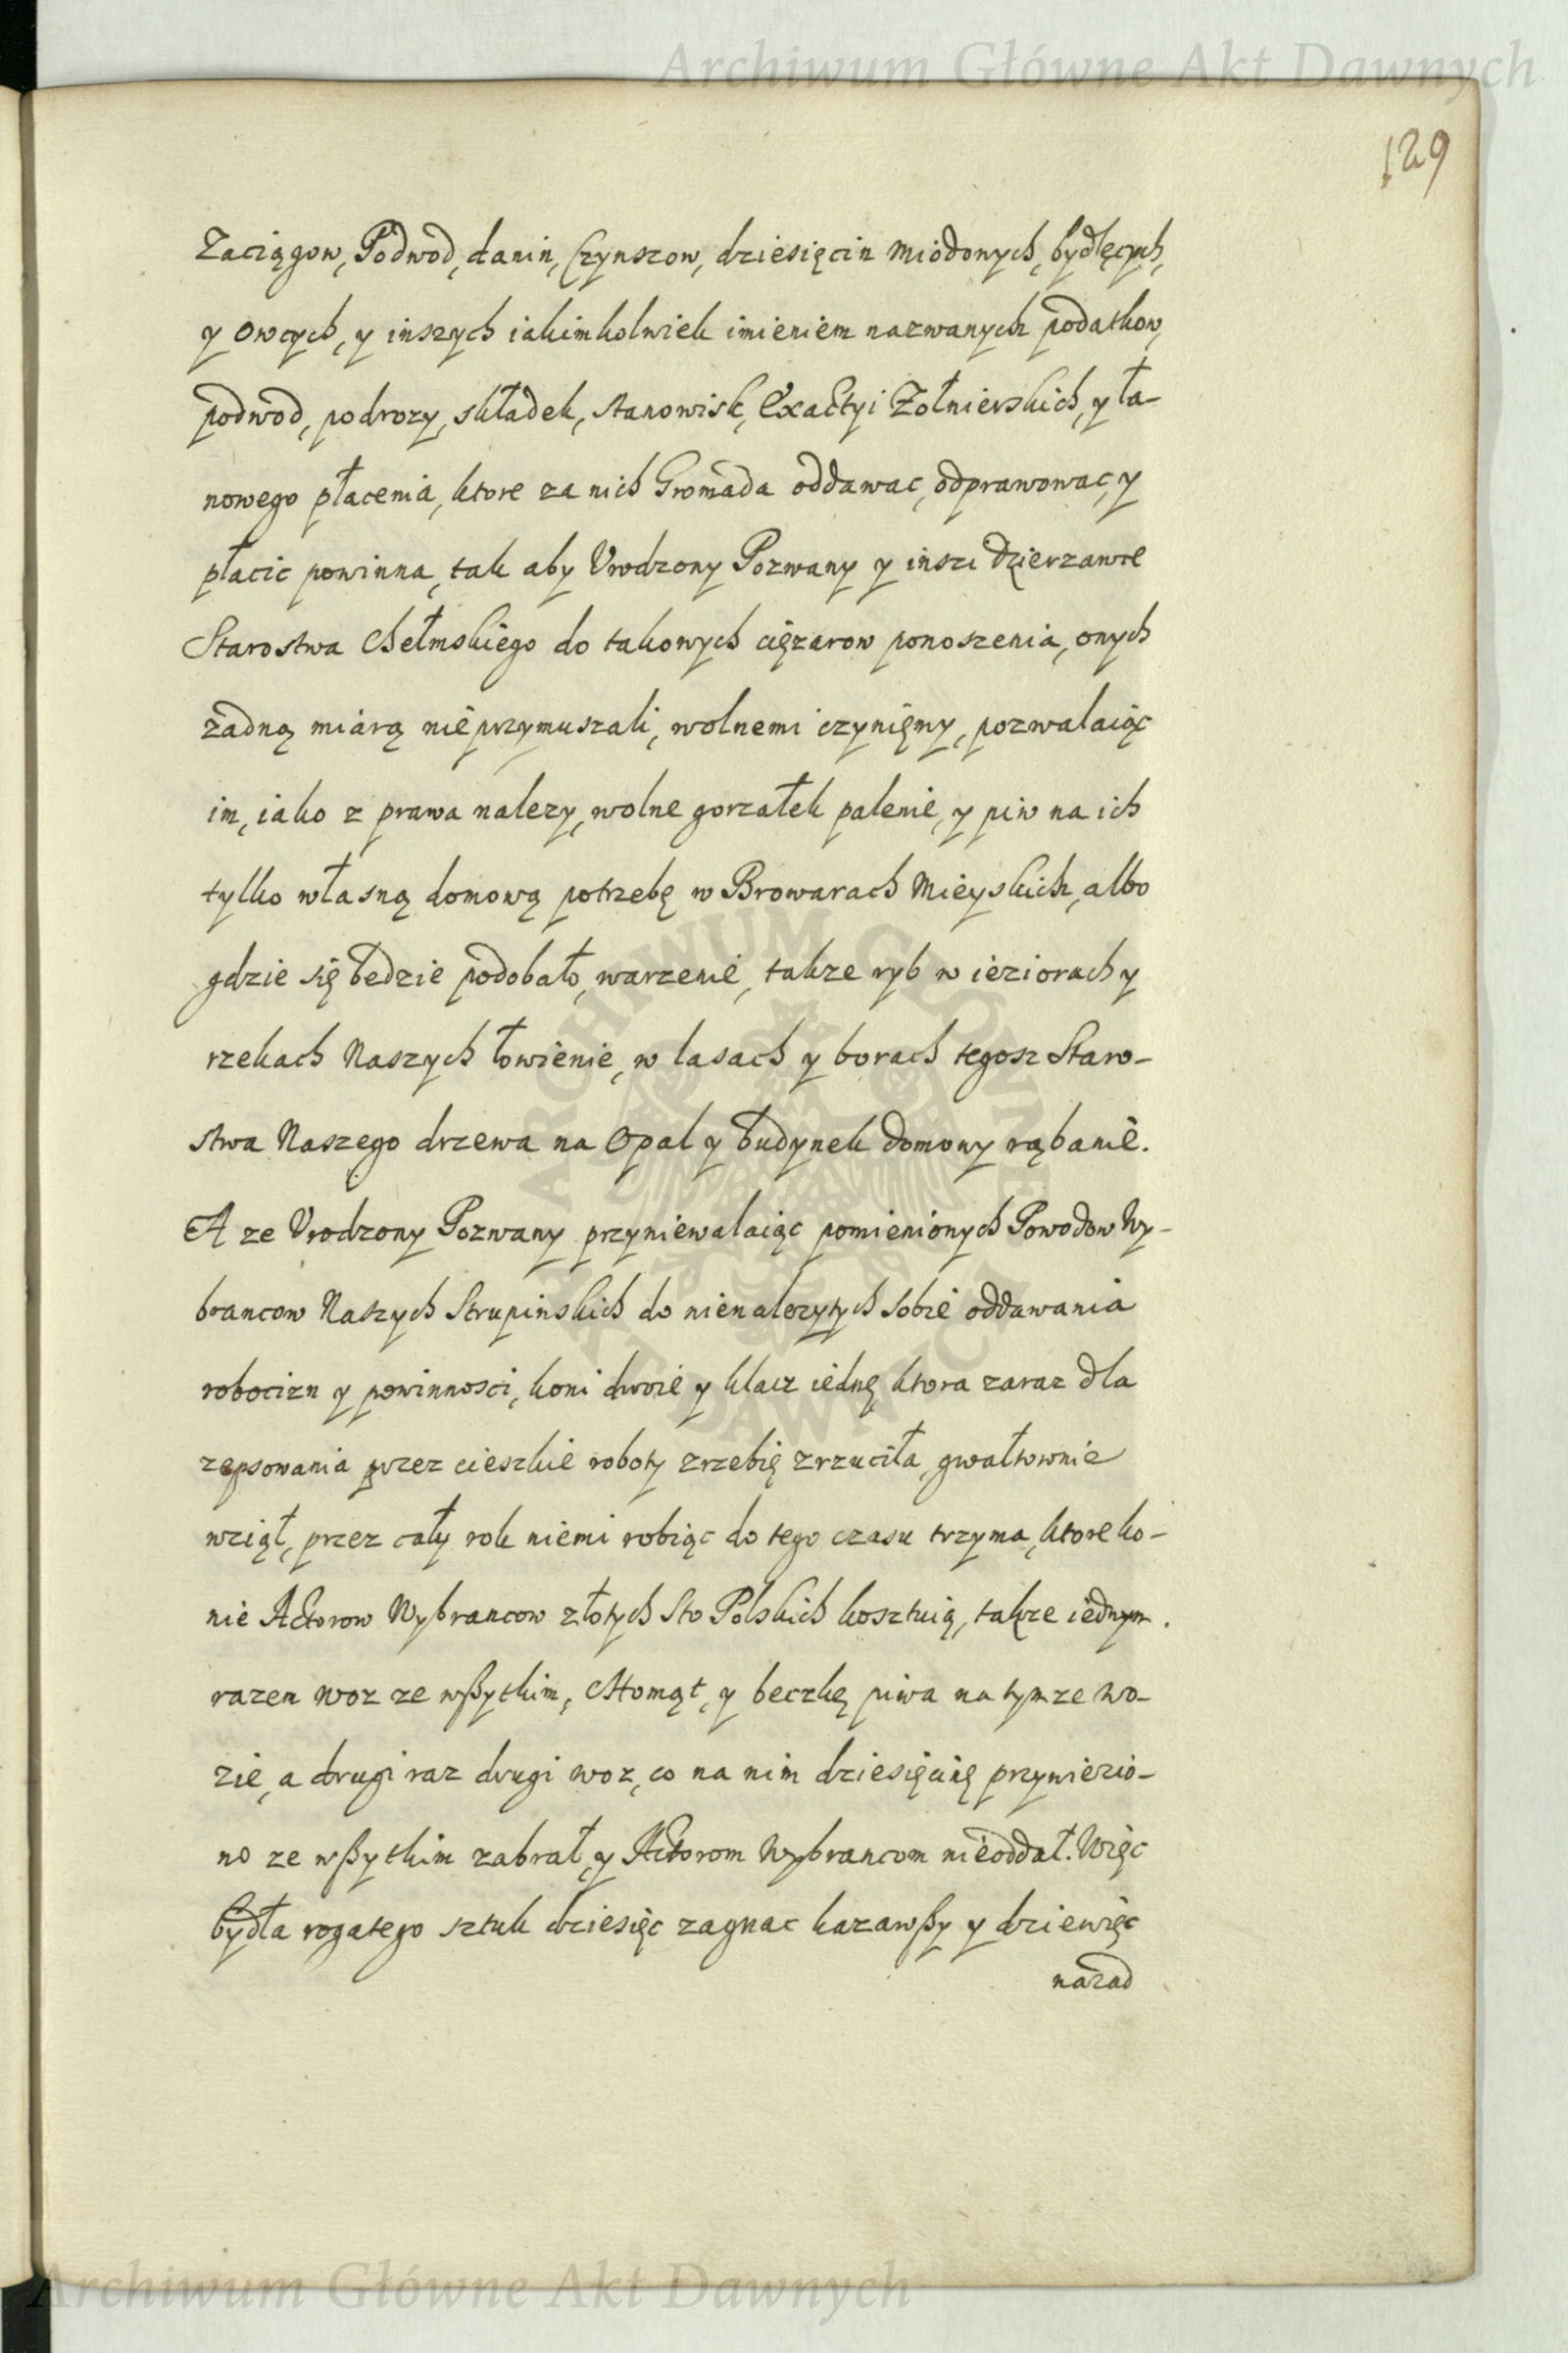 Archiwum Główne Akt Dawnych
129
Zaciągow, Podwod, danin, Czynszow, dziesięcin miodowych, bydlęcych,
y owczych, y inszych iakimkolwiek imieniem nazwanych podatkow,
podwod, podrozy, składek, stanowisk, Exactyi Zołnierskich, y ła-
nowego płacenia, ktore za nich Gromada oddawac, odprawowac, y
płacic powinna, tak aby Urodzony Pozwany y inszi dzierzawce
Starostwa Chełmskiego do takowych cięzarow ponoszenia, onych
zadną miarą nieprzymuszali, wolnemi czynięmy, pozwalaiąc
im, iako z prawa nalezy, wolne gorzałek palenie, y piw na ich
tylko własną domową potrzebę w Browarach Mieyskich, albo
gdzie się będzie podobało, warzenie, takze ryb w ieziorach y
rzekach Naszych łowienie, w lasach y borach tegosz Staro-
stwa Naszego drzewa na Opał y budynek domowy rąbanie.
A ze Urodzony Pozwany przyniewalaiąc pomienionych Powodow Wy-
brancow Naszych Strupinskich do nienalezytych sobie oddawania
robocizn y powinnosci, koni dwoie y klacz iednę ktora zaraz dla
zepsowania przez cieszkie roboty zrzebię zrzuciła, gwałtownie
wziął, przez cały rok niemi robiąc do tego czasu trzyma, ktore ko-
nie Actorow Wybrancow złotych sto Polskich kosztuią, takze iednym
razem woz ze wszytkim, Chomąt, y beczkę piwa na tymze wo-
zie, a drugi raz drugi woz, co na nim dziesięcinę przywiezio-
no ze wszytkim zabrał, y Actorom Wybrancom nieoddał. Więc
bydła rogatego sztuk dziesięc zagnac kazawszy y dziewięc
nazad
Archiwum Główne Akt Dawnych
ARCHIWUM GŁÓWNE
AKT DAWNYCH